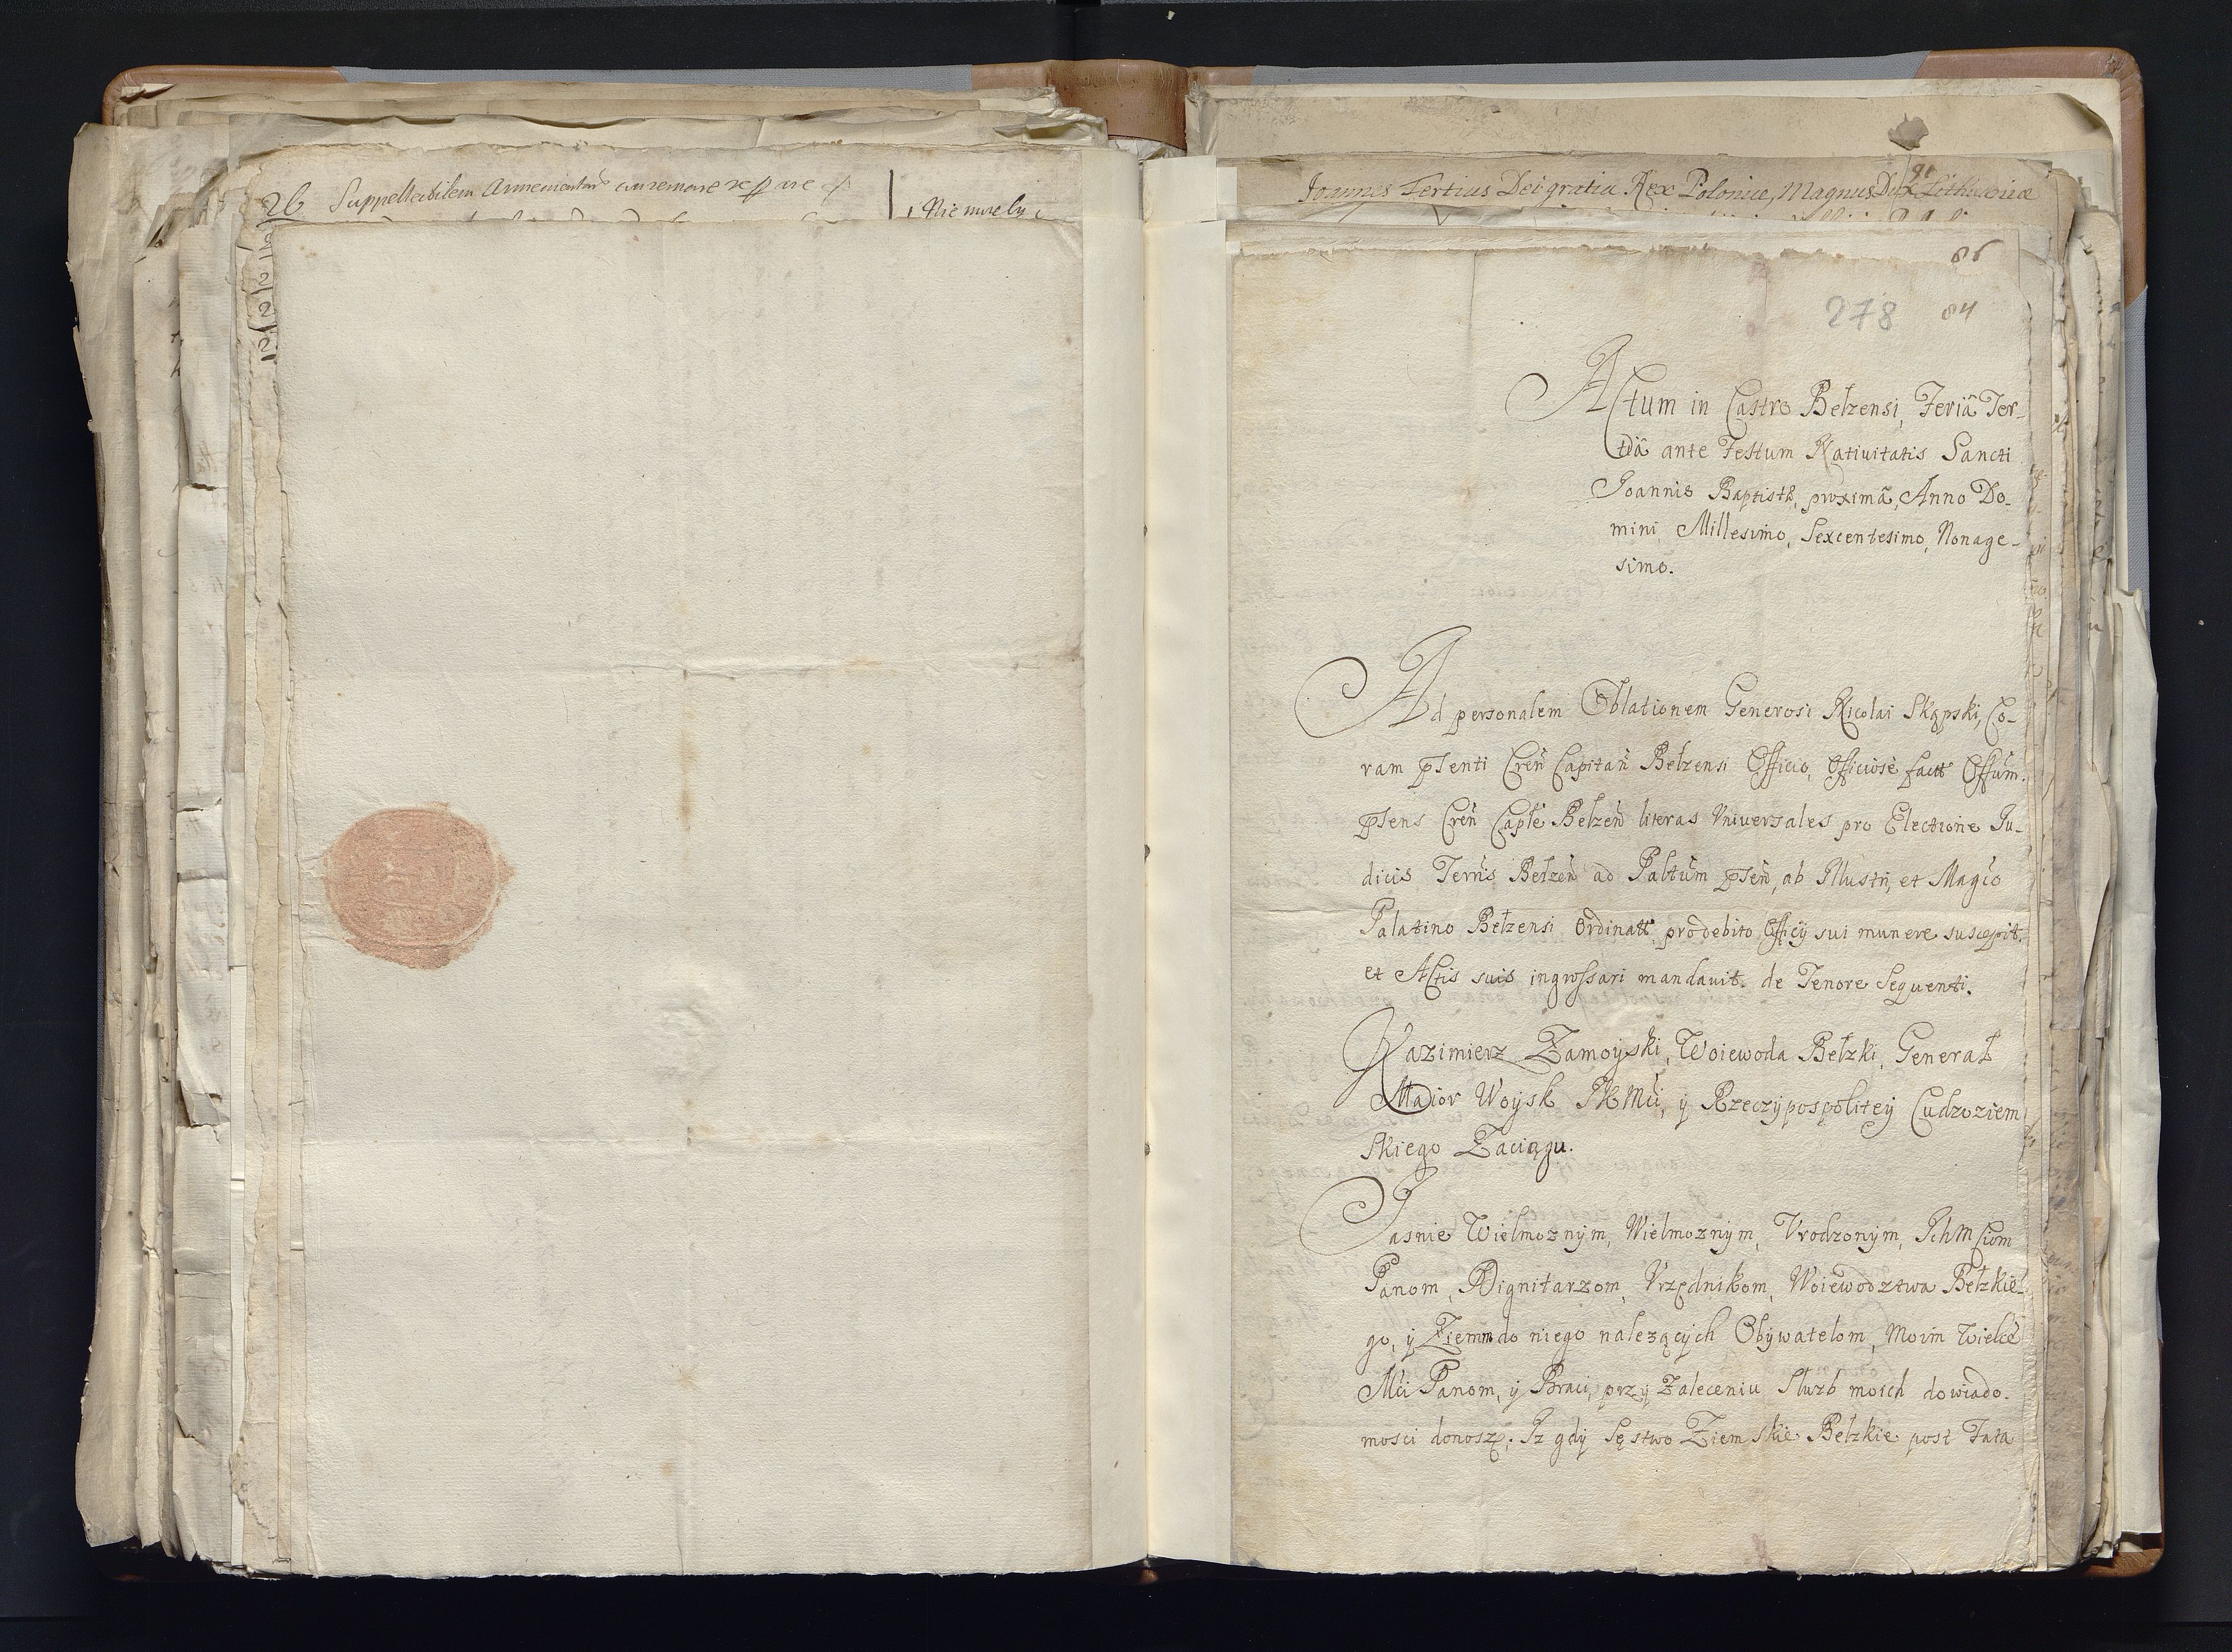 26 Suppellectilem
Nie
Joannes Tertius Dei gratia Rex Poloniæ, Magnus Dux Lithuaniæ
91
86
278 84
Actum in Castro Bełzensi, Feriâ Ter-
tiâ ante Festum Natiuitatis Sancti
Joannis Baptistæ, proximâ, Anno Do-
mini Millesimo, Sexcentesimo, Nonage-
simo.
Ad personalem Oblationem Generosi Nicolai Skąpski, Co-
ram pnti Cren Capitan Bełzensi Officio, Officiose fact Offum
pns Cren Captle Bełzen literas Vniuersales pro Electione Ju-
dicis Terris Bełzen ad Paltum pn, ab Illustri, et Magco
Palatino Bełzensi Ordinatt pro debito Officij sui munere suscepit,
et Actis suis ingrossari mandauit. de Tenore Sequenti.
Kazimierz Zamoyski, Woiewoda Bełzki, Generał
Maior Woysk JKMci, ÿ Rzeczÿpospolitey Cudzoziem
skiego Zaciągu.
Jasnie Wielmoznÿm, Wielmoznÿm, Vrodzonÿm, IchMciom
Panom, Dignitarzom, Vrzędnikom, Woiewodztwa Bełzkie-
go, ÿ Ziem do niego nalezącÿch Obÿwatelom, Moim Wielce
Mci Panom, ÿ Braci, przÿ Zaleceniu Słuzb moich do wiado-
mosci donoszę; Iz gdÿ Sęstwo Ziemskie Bełzkie post Fata